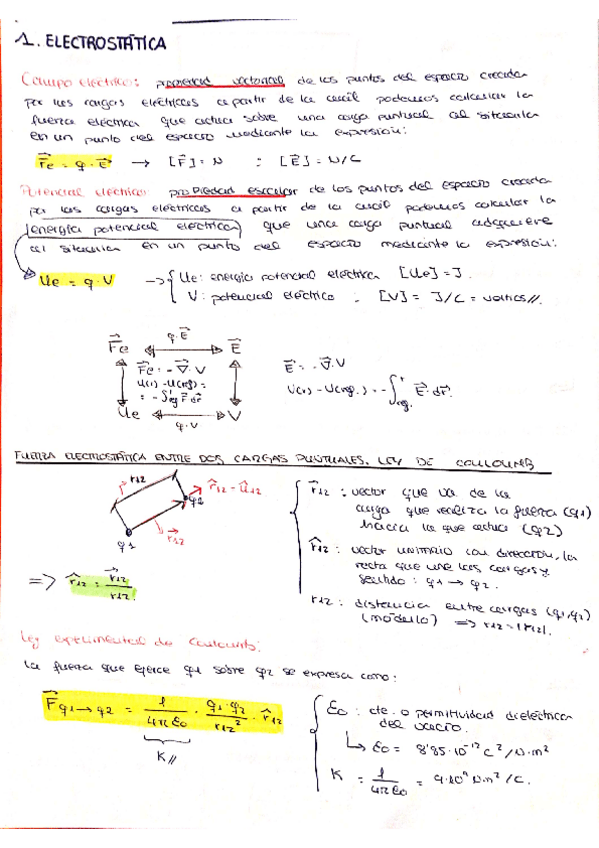 1. ELECTROSTÁTICA
Campo eléctrico: propiedad vectorial de los puntos del espacio creada
por las cargas eléctricas a partir de la cual podemos calcular la
fuerza eléctrica que actua sobre una carga puntual al situarla
en un punto del espacio mediante la expresión:
F⃗e = q · E⃗ → [F⃗] = N : [E⃗] = N/C
Potencial eléctrico: propiedad escalar de los puntos del espacio creada
por las cargas eléctricas a partir de la cual podemos calcular la
energía potencial eléctrica que una carga puntual adquiere
al situarla en un punto del espacio mediante la expresión:
Ue = q · V → { Ue: energía potencial eléctrica [Ue] = J.
V: potencial eléctrico : [V] = J/C = voltios//.
q · E⃗
F⃗e ↔ E⃗
F⃗e = -∇⃗ · V
U(r) - U(ref) =
= -∫ref^r F⃗ dr⃗
Ue ↔ V
q · V
E⃗ = -∇⃗ · V
V(r) - V(ref.) = -∫ref.^r E⃗ · dr⃗.
FUERZA ELECTROSTÁTICA ENTRE DOS CARGAS PUNTUALES. LEY DE COULOUMB
r12
q2
r̂12 - û12
r⃗12
q1
=> r̂12 = r⃗12 / r12.
r⃗12 : vector que va de la
carga que realiza la fuerza (q1)
hacia la que actua (q2)
r̂12 : vector unitario con dirección, la
recta que une las cargas y
sentido : q1 → q2.
r12 : distancia entre cargas (q1,q2)
(módulo) => r12 = |r12|.
Ley experimental de Coulomb:
La fuerza que ejerce q1 sobre q2 se expresa como:
F⃗q1→q2 = 1/4πε0 · q1·q2/r12² · r̂12
K//
ε0 : cte. o permitividad dieléctrica
del vacío.
↳ ε0 = 8'85·10⁻¹² C²/N·m²
K = 1/4πε0 = 9·10⁹ N·m²/C.